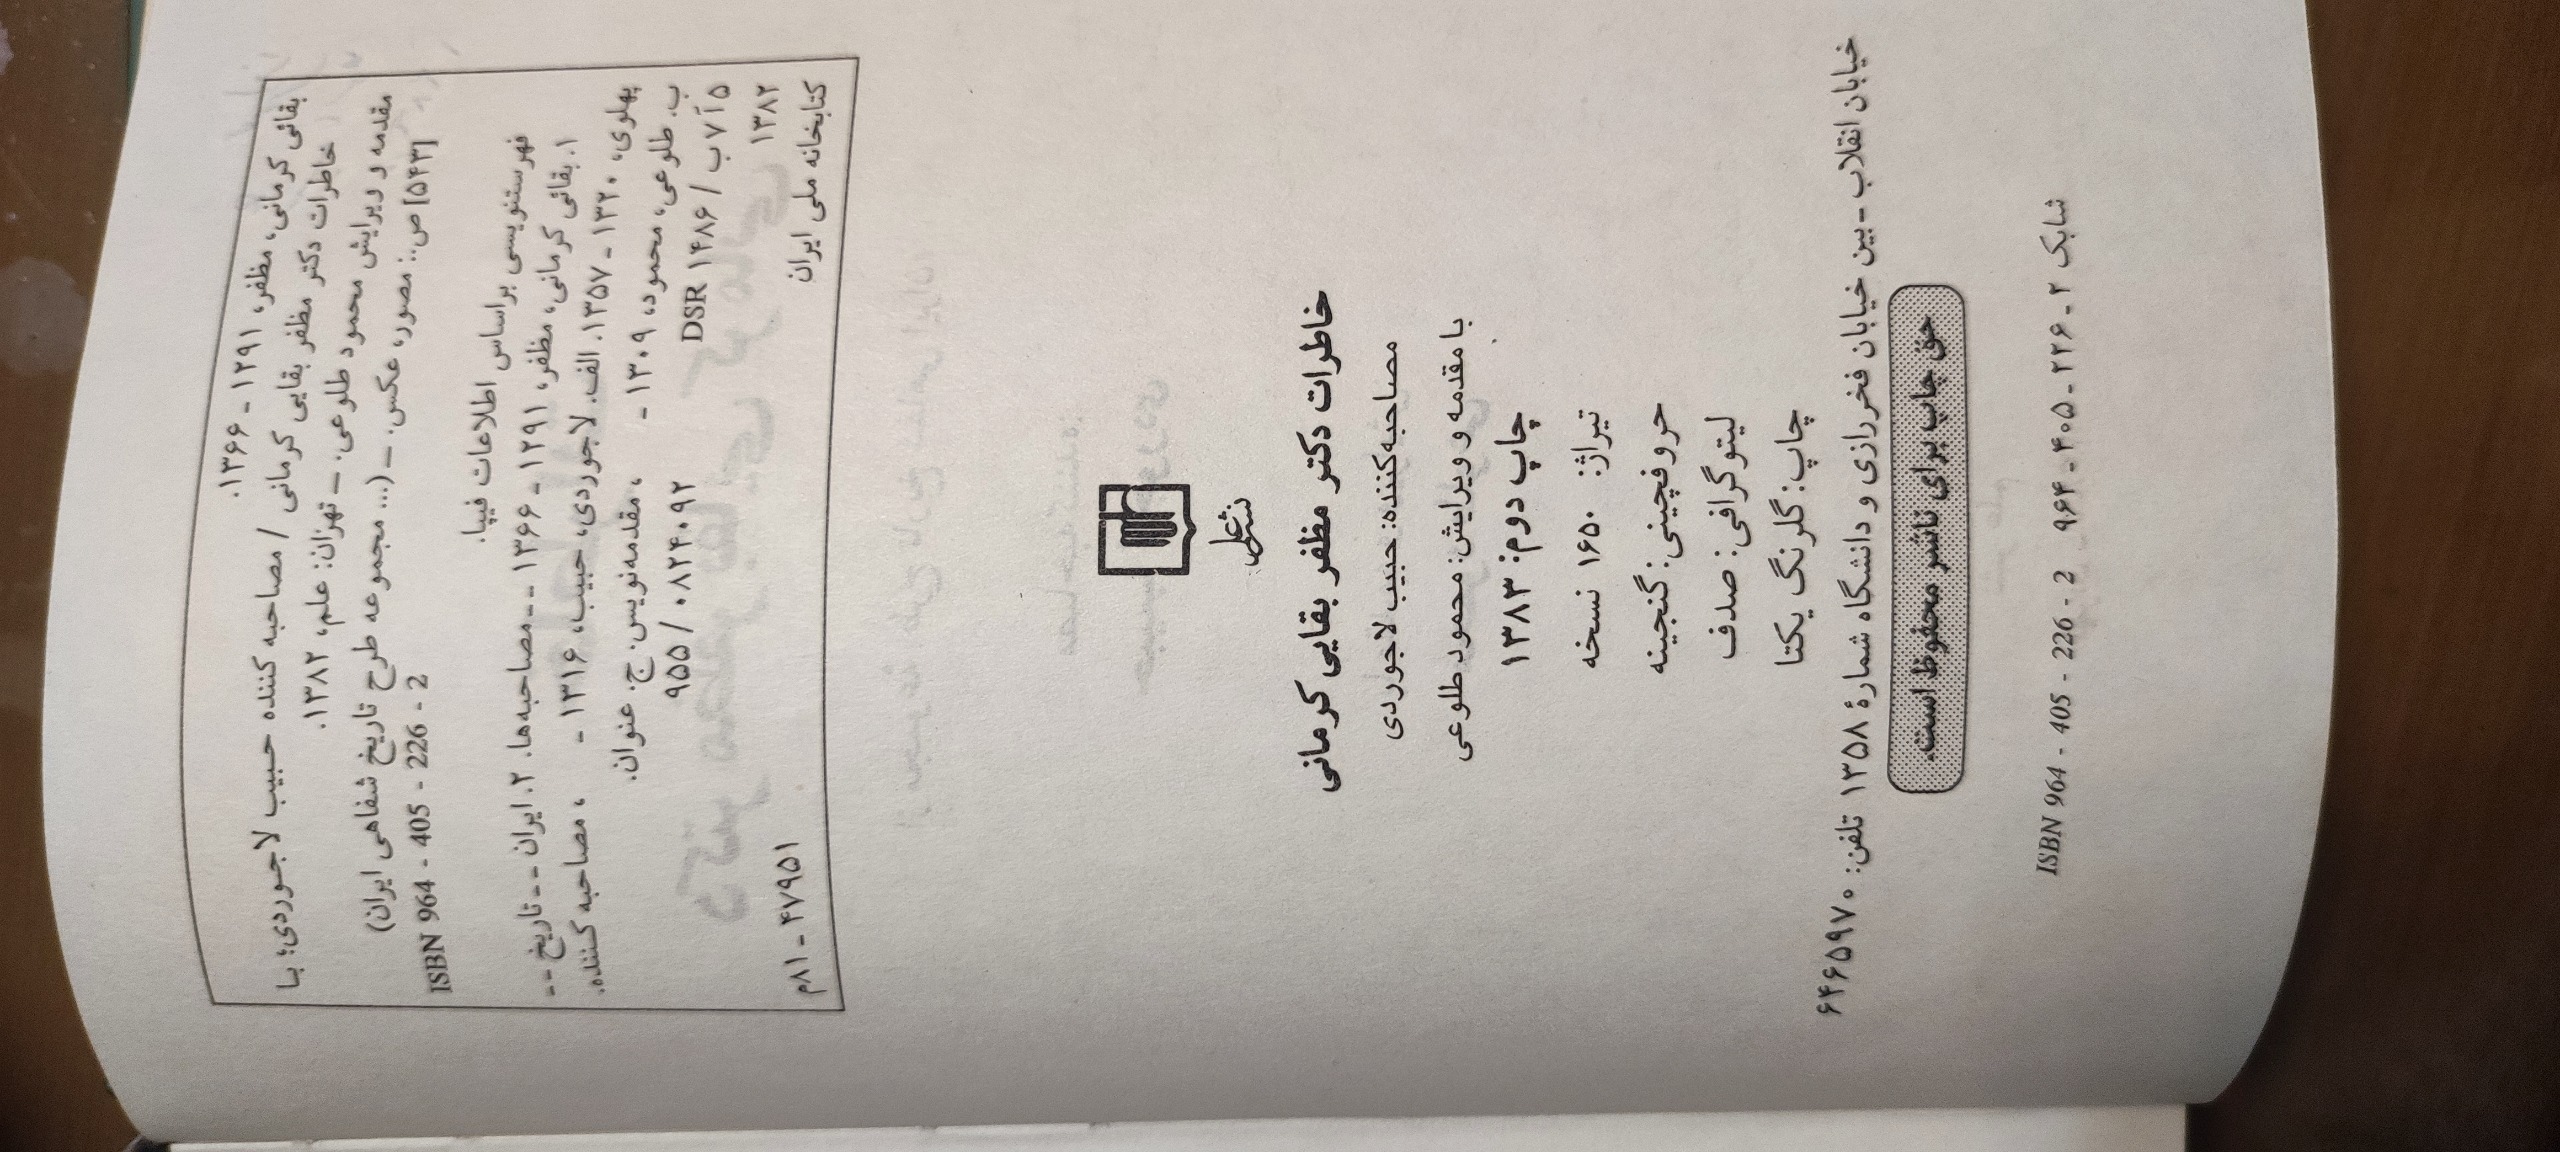 بقائی کرمانی، مظفر، ۱۲۹۱ - ۱۳۶۶.
خاطرات دکتر مظفر بقایی کرمانی / مصاحبه کننده حبیب لاجوردی؛ با
مقدمه و ویرایش محمود طلوعی. — تهران: علم، ۱۳۸۲.
[۵۴۳] ص.: مصور، عکس. — (... مجموعه طرح تاریخ شفاهی ایران)
ISBN 964 - 405 - 226 - 2
فهرستنویسی براساس اطلاعات فیپا.
۱. بقائی کرمانی، مظفر، ۱۲۹۱ - ۱۳۶۶ -- مصاحبه‌ها. ۲. ایران -- تاریخ --
پهلوی، ۱۳۲۰ - ۱۳۵۷. الف. لاجوردی، حبیب، ۱۳۱۶ - ، مصاحبه کننده.
ب. طلوعی، محمود، ۱۳۰۹ - ، مقدمه‌نویس. ج. عنوان.
۵ آ ۷ ب / DSR ۱۴۸۶ ۹۵۵ / ۰۸۲۴۰۹۲
۱۳۸۲
کتابخانه ملی ایران ۴۷۹۵۱ - ۸۱م
نشر علم
خاطرات دکتر مظفر بقایی کرمانی
مصاحبه‌کننده: حبیب لاجوردی
با مقدمه و ویرایش: محمود طلوعی
چاپ دوم: ۱۳۸۳
تیراژ: ۱۶۵۰ نسخه
حروفچینی: گنجینه
لیتوگرافی: صدف
چاپ: گلرنگ یکتا
خیابان انقلاب - بین خیابان فخررازی و دانشگاه شمارهٔ ۱۳۵۸ تلفن: ۶۴۶۵۹۷۰
حق چاپ برای ناشر محفوظ است.
شابک ۲ - ۲۲۶ - ۴۰۵ - ۹۶۴ ISBN 964 - 405 - 226 - 2